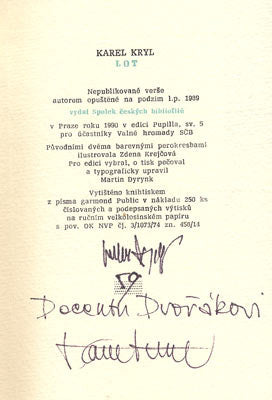 KAREL KRYL
LOT
Nepublikované verše
autorem opuštěné na podzim l.p. 1989
vydal Spolek českých bibliofilů
v Praze roku 1990 v edici Pupilla, sv. 5
pro účastníky Valné hromady SČB
Původními dvěma barevnými perokresbami
ilustrovala Zdena Krejčová
Pro edici vybral, o tisk pečoval
a typograficky upravil
Martin Dyrynk
Vytištěno knihtiskem
z písma garmond Public v nákladu 250 ks
číslovaných a podepsaných výtisků
na ručním velkolosinském papíru
s pov. OK NVP čj. 3/1073/74 zn. 458/14
59
Docentu Dvořákovi